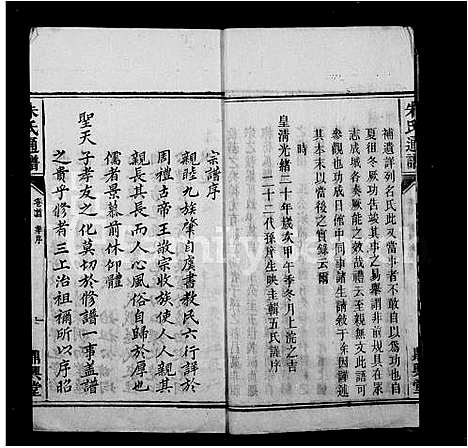 朱氏通譜
補遺詳列名氏此又當事者不敢自以爲功也自
夏徂冬厥功告竣其事之易舉謂非前規具在眾
志成城各奏厥能之效哉禮云至親無文此語可
參觀也功成日館中同事諸生請敘于余因謹述
其本末以當後之實錄云爾
時
皇清光緒二十年歲次甲午季冬月上浣之吉
二十二代孫 生映奎輯五氏謹序
宗譜序
親睦九族肇自虞書教民六行詳於
周禮古帝王敬宗收族使人人親其
親長其長而人心風俗自歸於厚也
儒者景慕前休仰體
聖天子孝友之化莫切於修譜一事蓋譜
之貴乎修者三上治祖禰所以序昭
朱氏通譜
卷首 序
鼎興堂